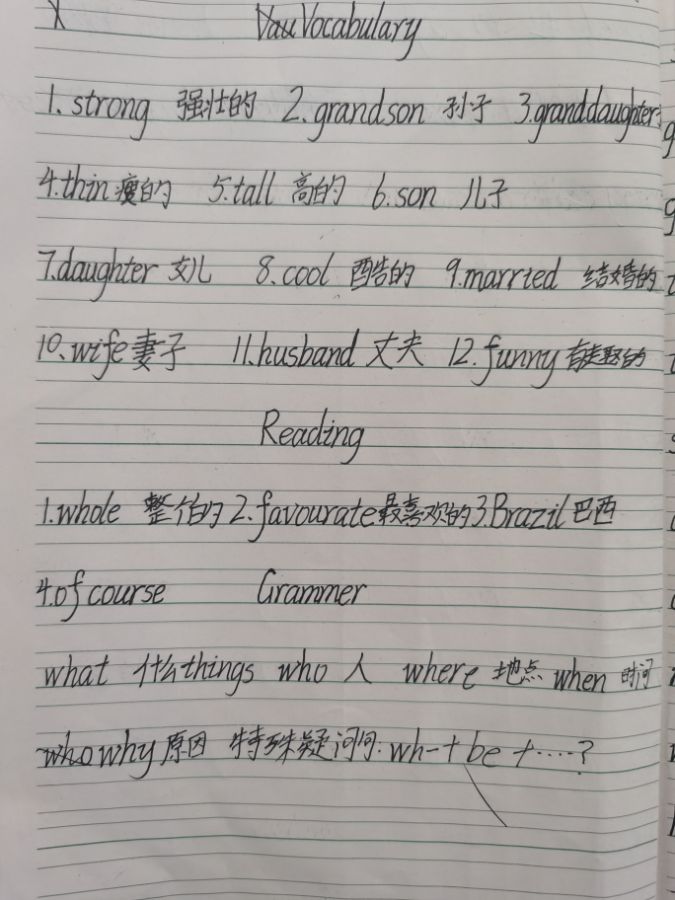 Vocabulary
1. strong 强壮的 2. grandson 孙子 3. granddaughter
4. thin 瘦的 5. tall 高的 6. son 儿子
7. daughter 女儿 8. cool 酷的 9. married 结婚的
10. wife 妻子 11. husband 丈夫 12. funny 有趣的
Reading
1. whole 整个的 2. favourate 最喜欢的 3. Brazil 巴西
4. of course Grammer
what 什么things who 人 where 地点 when 时间
who why 原因 特殊疑问句: wh-+ be +·····?